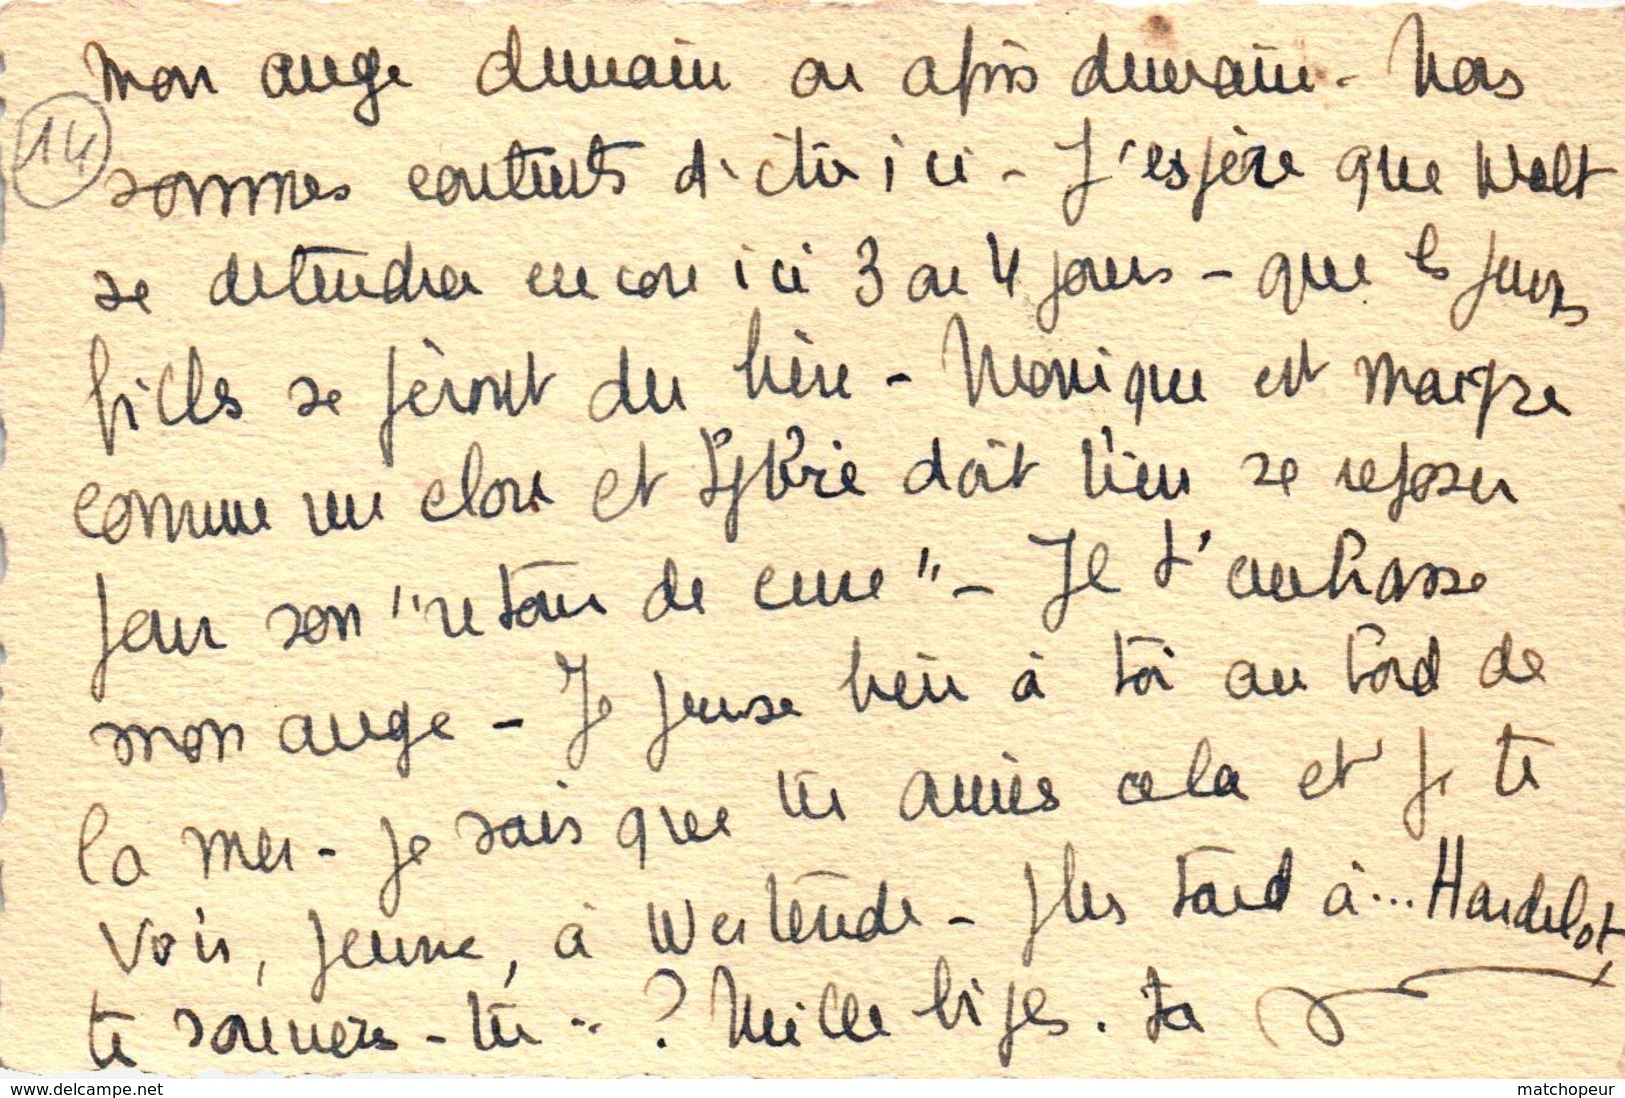 mon ange demain ou après demain - Nous
14
sommes contents d'être ici - J'espère que Walt
se detendra encore ici 3 ou 4 jours - que les jeunes
filles se feront du bien - Monique est maigre
comme un clou et doit bien se reposer
pour son "retour de cure" - Je t'embrasse
mon ange - Je pense bien à toi au bord de
la mer - je sais que tu aimes cela et je te
vois, jeune, à Westende - plus tard à... Hardelot,
te souviens-tu..? Mille bises. Ta
www.delcampe.net
matchopeur